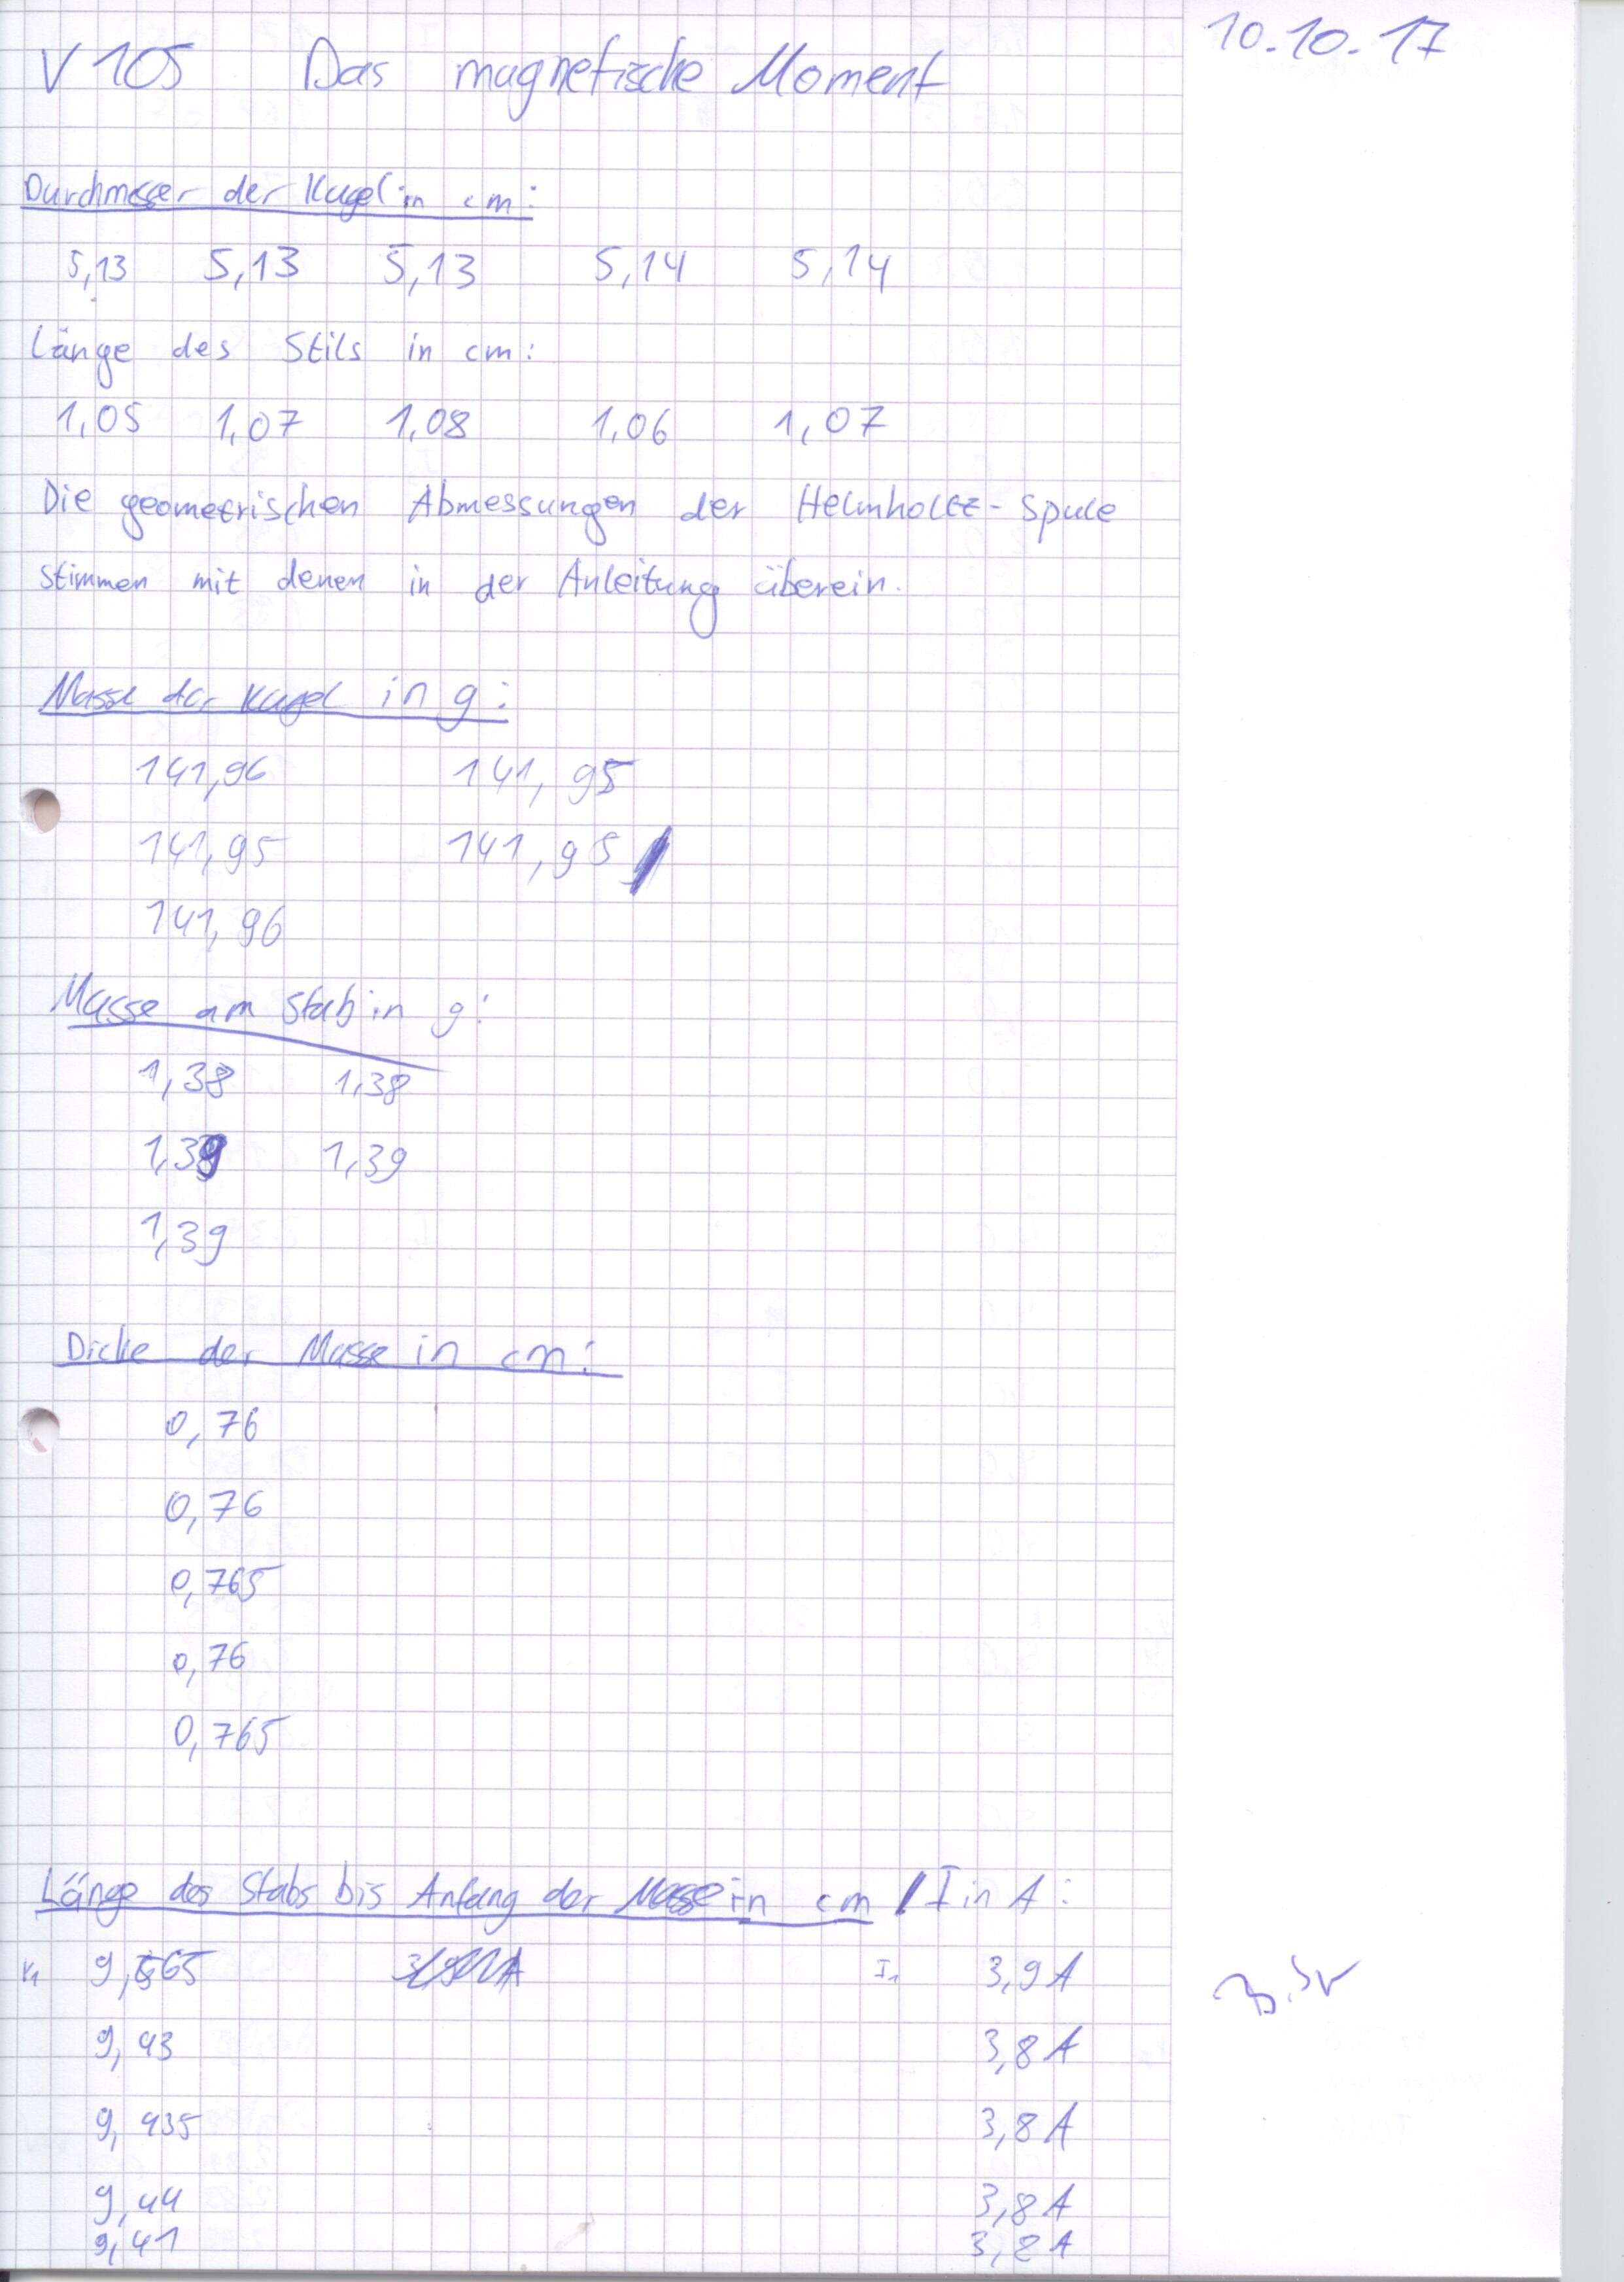 10.10.17
V 105 Das magnetische Moment
Durchmesser der Kugel in cm:
5,13 5,13 5,13 5,14 5,14
Länge des Stils in cm:
1,05 1,07 1,08 1,06 1,07
Die geometrischen Abmessungen der Helmholtz-Spule
stimmen mit denen in der Anleitung überein.
Masse der Kugel in g:
141,96 141,95
141,95 141,95
141,96
Masse am Stab in g:
1,38 1,38
1,39 1,39
1,39
Dicke der Masse in cm:
0,76
0,76
0,765
0,76
0,765
Länge des Stabs bis Anfang der Masse in cm / I in A:
9,565 I1 3,9 A
9,43 3,8 A
9,435 3,8 A
9,44 3,8 A
9,41 3,8 A